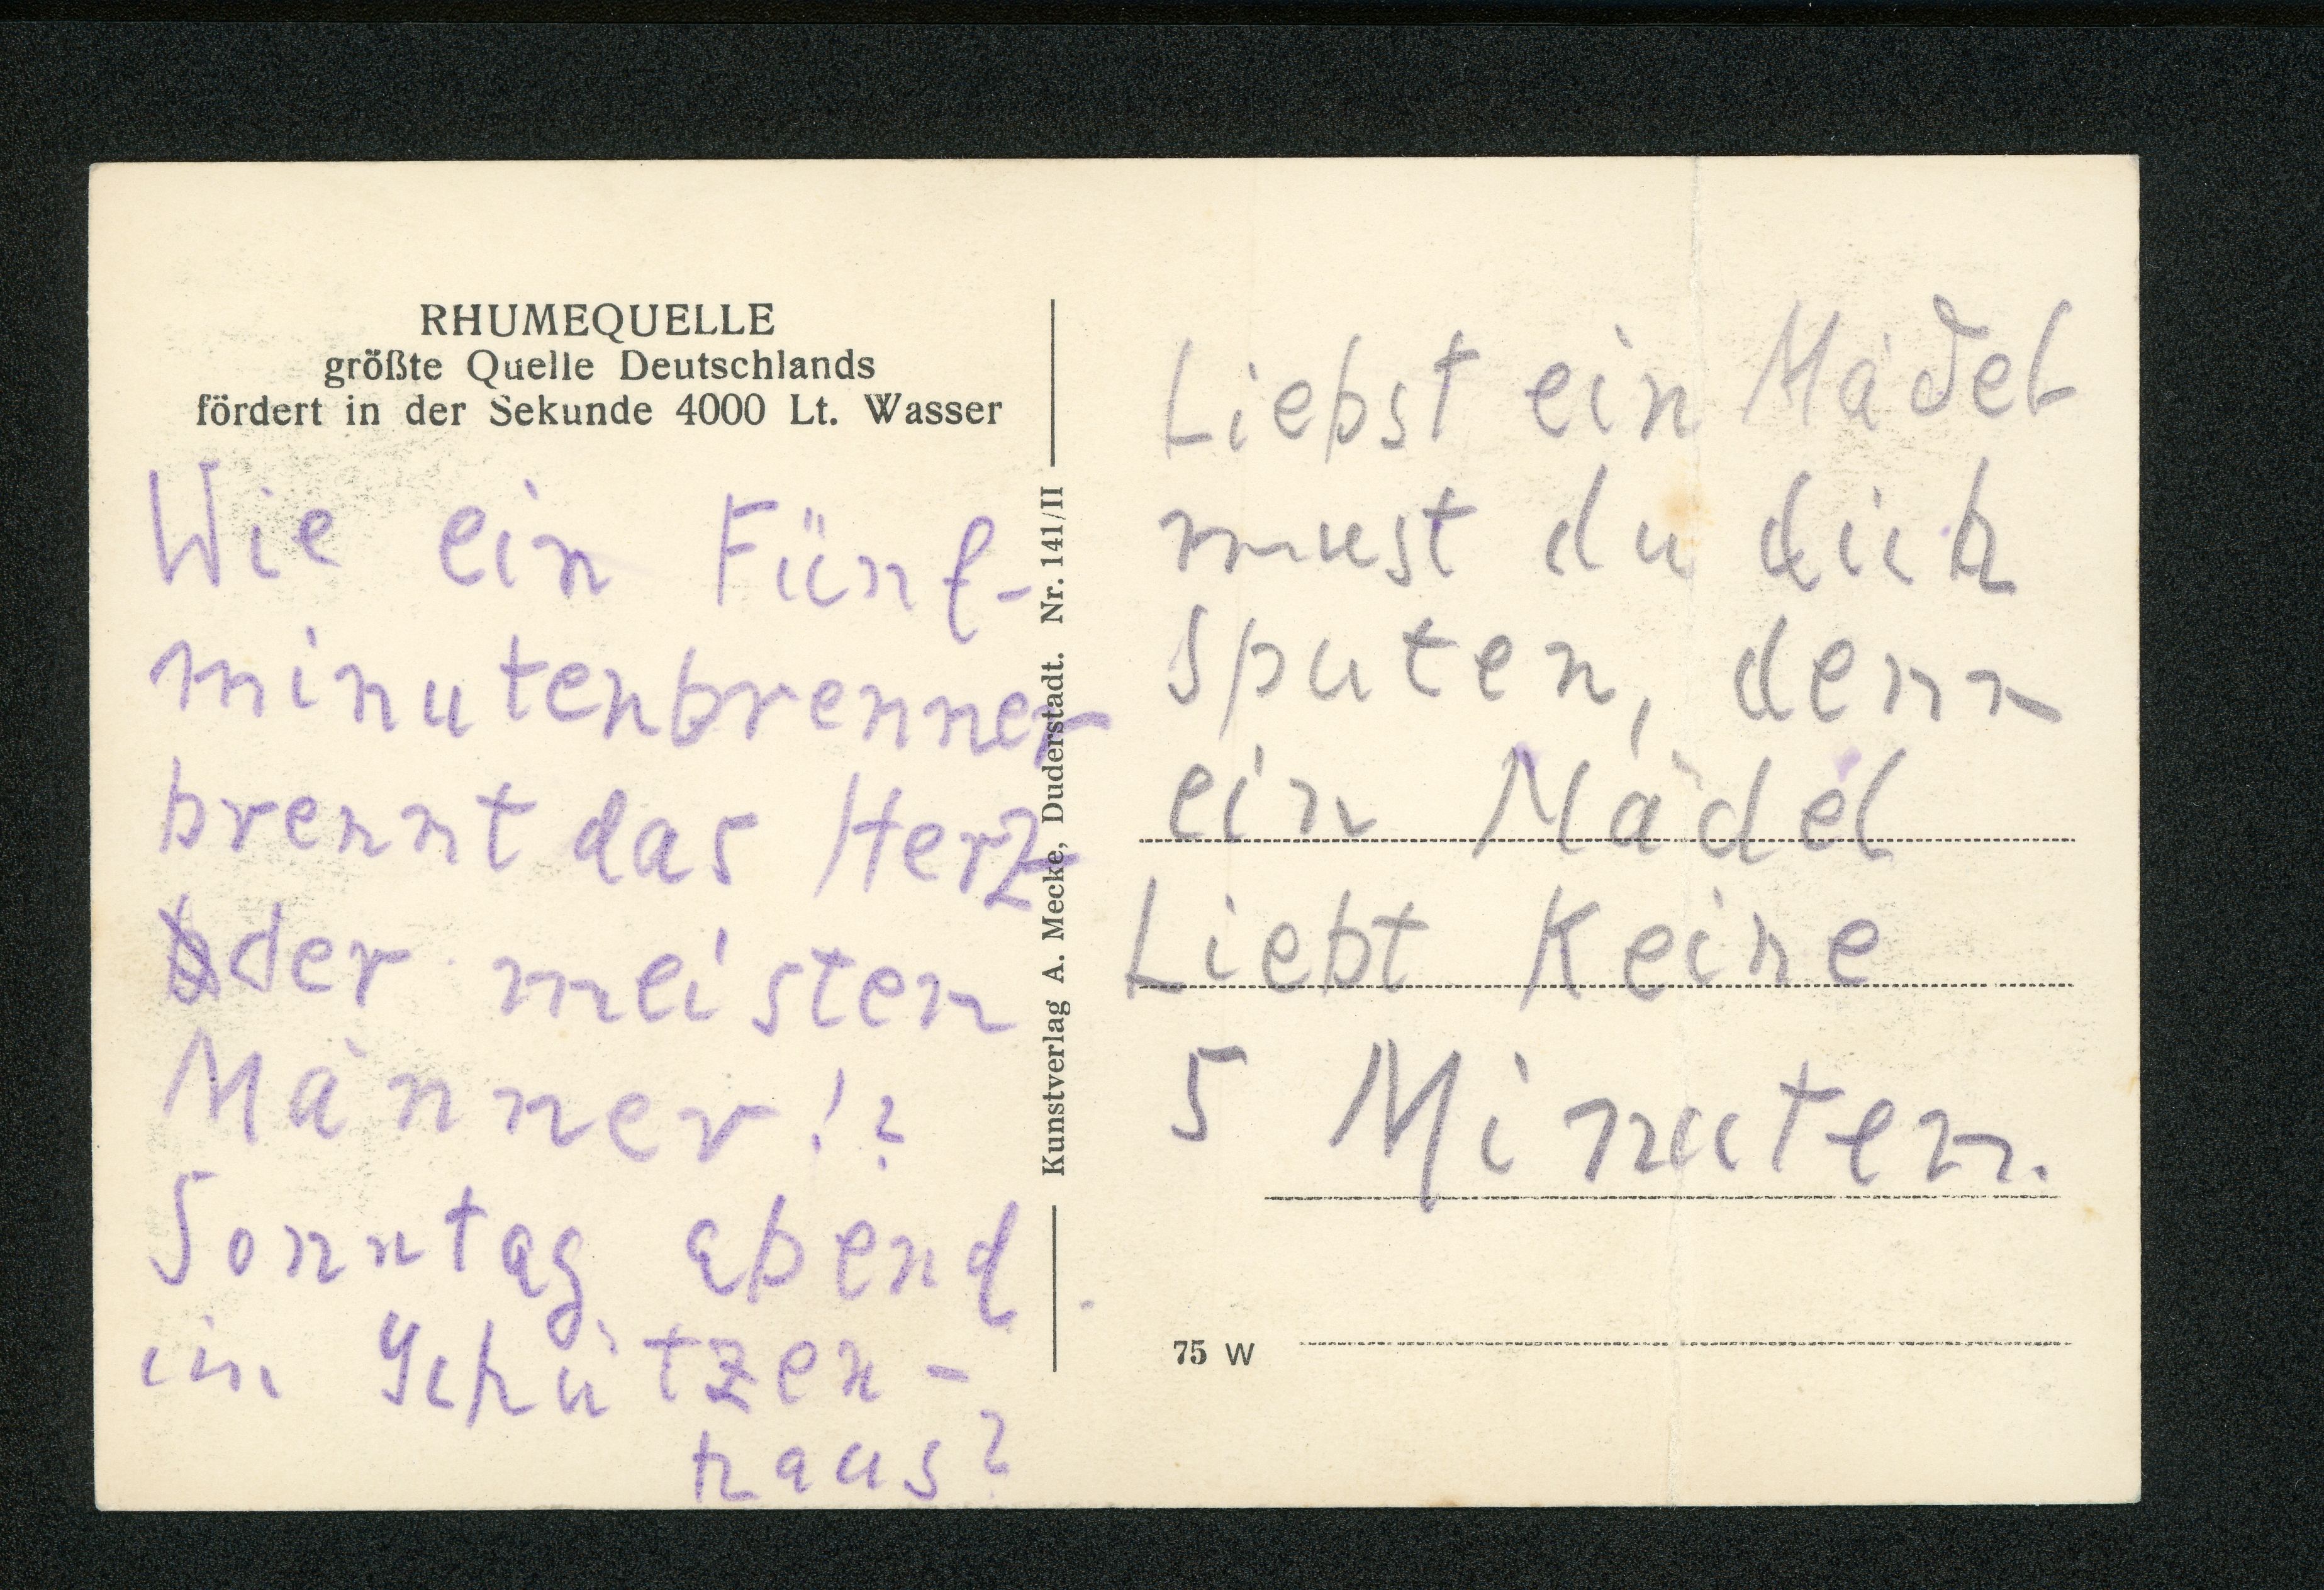 RHUMEQUELLE
größte Quelle Deutschlands
fördert in der Sekunde 4000 Lt. Wasser
Wie ein Fünf-
minutenbrenner
brennt das Herz
der meisten
Männer!?
Sonntag abend
im Schützen-
haus?
Kunstverlag A. Mecke, Duderstadt. Nr. 141/II
Liebst ein Mädel
must du dich
sputen, denn
ein Mädel
Liebt Keine
5 Minuten.
75 W